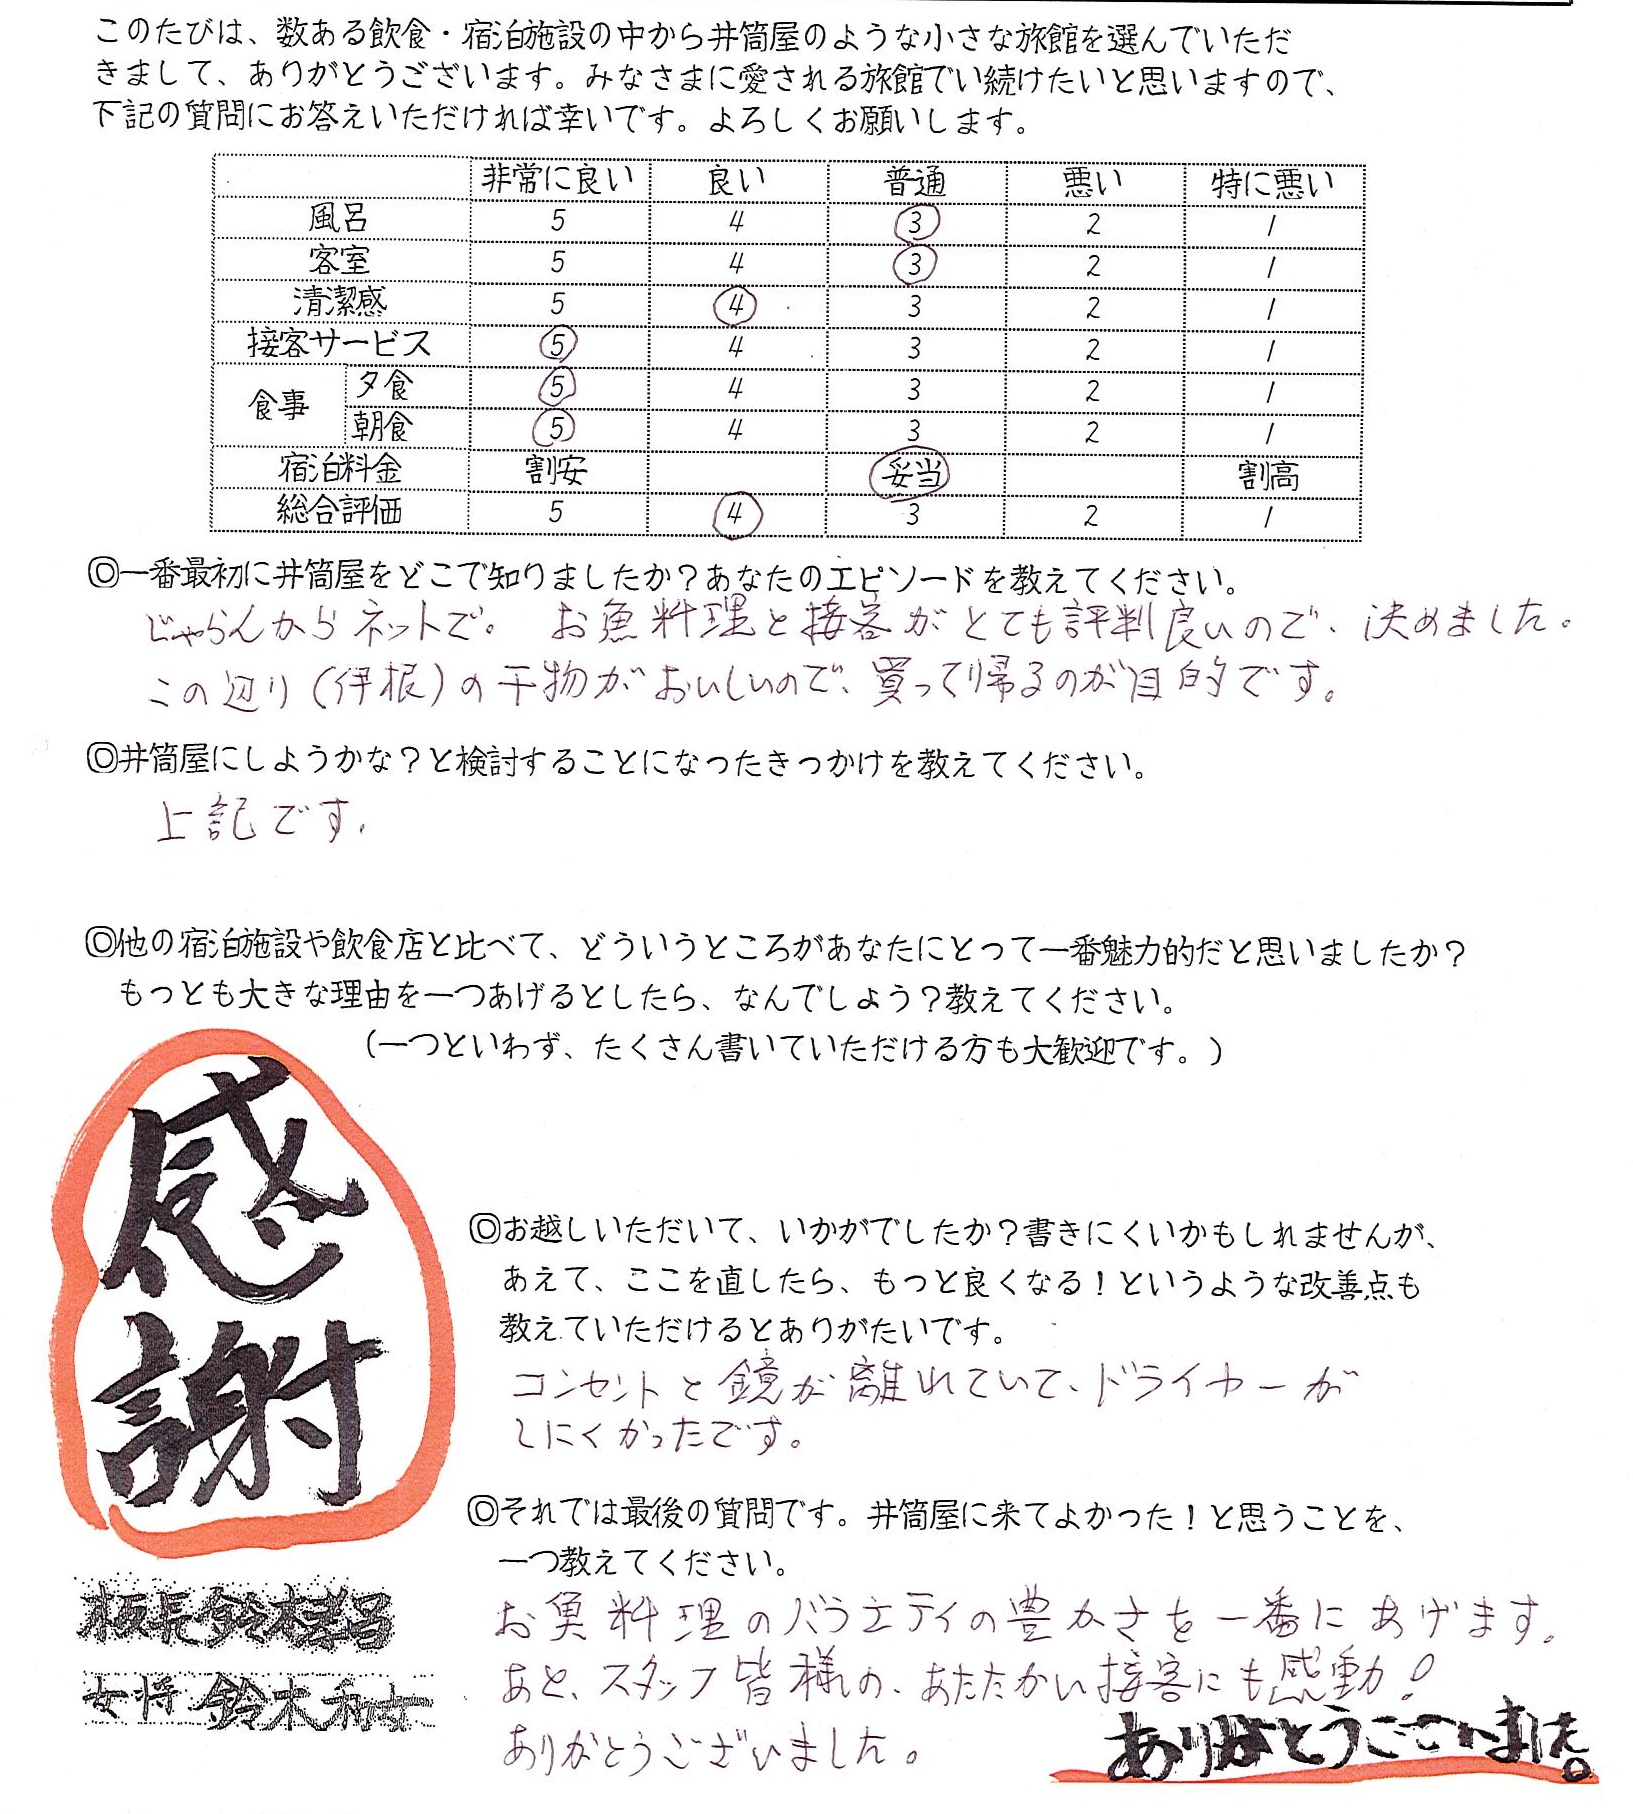 このたびは、数ある飲食・宿泊施設の中から井筒屋のような小さな旅館を選んでいただ
きまして、ありがとうございます。みなさまに愛される旅館でい続けたいと思いますので、
下記の質問にお答えいただければ幸いです。よろしくお願いします。
非常に良い 良い 普通 悪い 特に悪い
風呂 5 4 3 2 1
客室 5 4 3 2 1
清潔感 5 4 3 2 1
接客サービス 5 4 3 2 1
食事 夕食 5 4 3 2 1
朝食 5 4 3 2 1
宿泊料金 割安 妥当 割高
総合評価 5 4 3 2 1
◎一番最初に井筒屋をどこで知りましたか？あなたのエピソードを教えてください。
じゃらんからネットで。 お魚料理と接客がとても評判良いので、決めました。
この辺り(伊根)の干物がおいしいので、買って帰るのが目的です。
◎井筒屋にしようかな？と検討することになったきっかけを教えてください。
上記です。
◎他の宿泊施設や飲食店と比べて、どういうところがあなたにとって一番魅力的だと思いましたか？
もっとも大きな理由を一つあげるとしたら、なんでしよう？教えてください。
（一つといわず、たくさん書いていただける方も大歓迎です。）
感
謝
◎お越しいただいて、いかがでしたか？書きにくいかもしれませんが、
あえて、ここを直したら、もっと良くなる！というような改善点も
教えていただけるとありがたいです。
コンセントと鏡が離れていて、ドライヤーが
しにくかったです。
◎それでは最後の質問です。井筒屋に来てよかった！と思うことを、
一つ教えてください。
お魚料理のバラエティの豊かさを一番にあげます。
あと、スタッフ皆様の、あたたかい接客にも感動！
ありがとうございました。
板長 鈴木孝昌
女将 鈴木和
ありがとうございました。